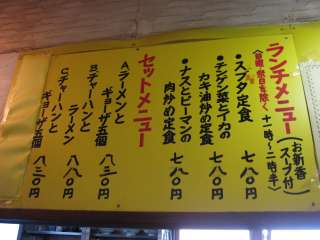 ランチメニュー(お新香スープ付)
(日曜・祭日を除く 十一時〜二時半)
・スブタ定食 七八〇円
・チンゲン菜とイカの
カキ油炒め定食 七八〇円
・ナスとピーマンの
肉炒め定食 七八〇円
セットメニュー
A.ラーメンと
ギョーザ五個 八三〇円
B.チャーハンと
ラーメン 八八〇円
C.チャーハンと
ギョーザ五個 八三〇円